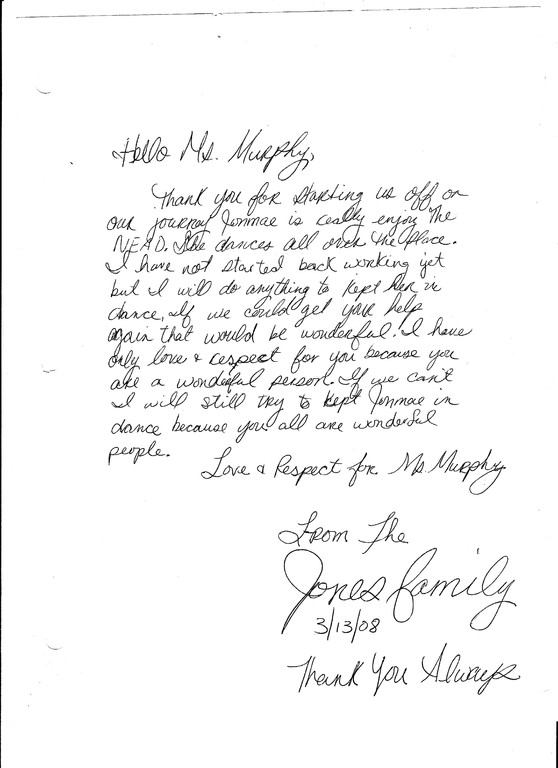 Hello Ms. Murphy,
Thank you for starting us off on
our journey Jonmae is really enjoy The
NEAD. She dances all over the place.
I have not started back working yet
but I will do anything to kept her in
dance, If we could get your help
again that would be wonderful! I have
only love & respect for you because you
are a wonderful person. If we can't
I will still try to kept Jonmae in
dance because you all are wonderful
people.
Love & Respect for Ms. Murphy
From The
Jones family
3/13/08
Thank You Always